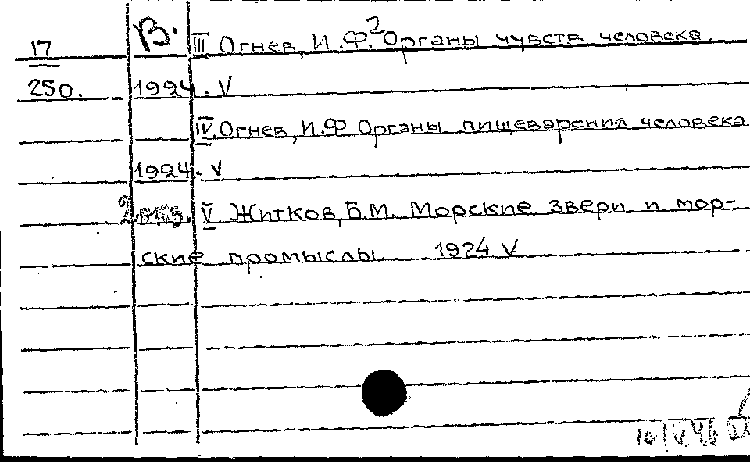 17 В. III Огнев, И.Ф. Органы чувств человека.
250. 1924. V
IV. Огнев, И.Ф Органы пищеварения человека
1924. V
V Житков, Б.М. Морские звери и мор-
ские промыслы 1924 V